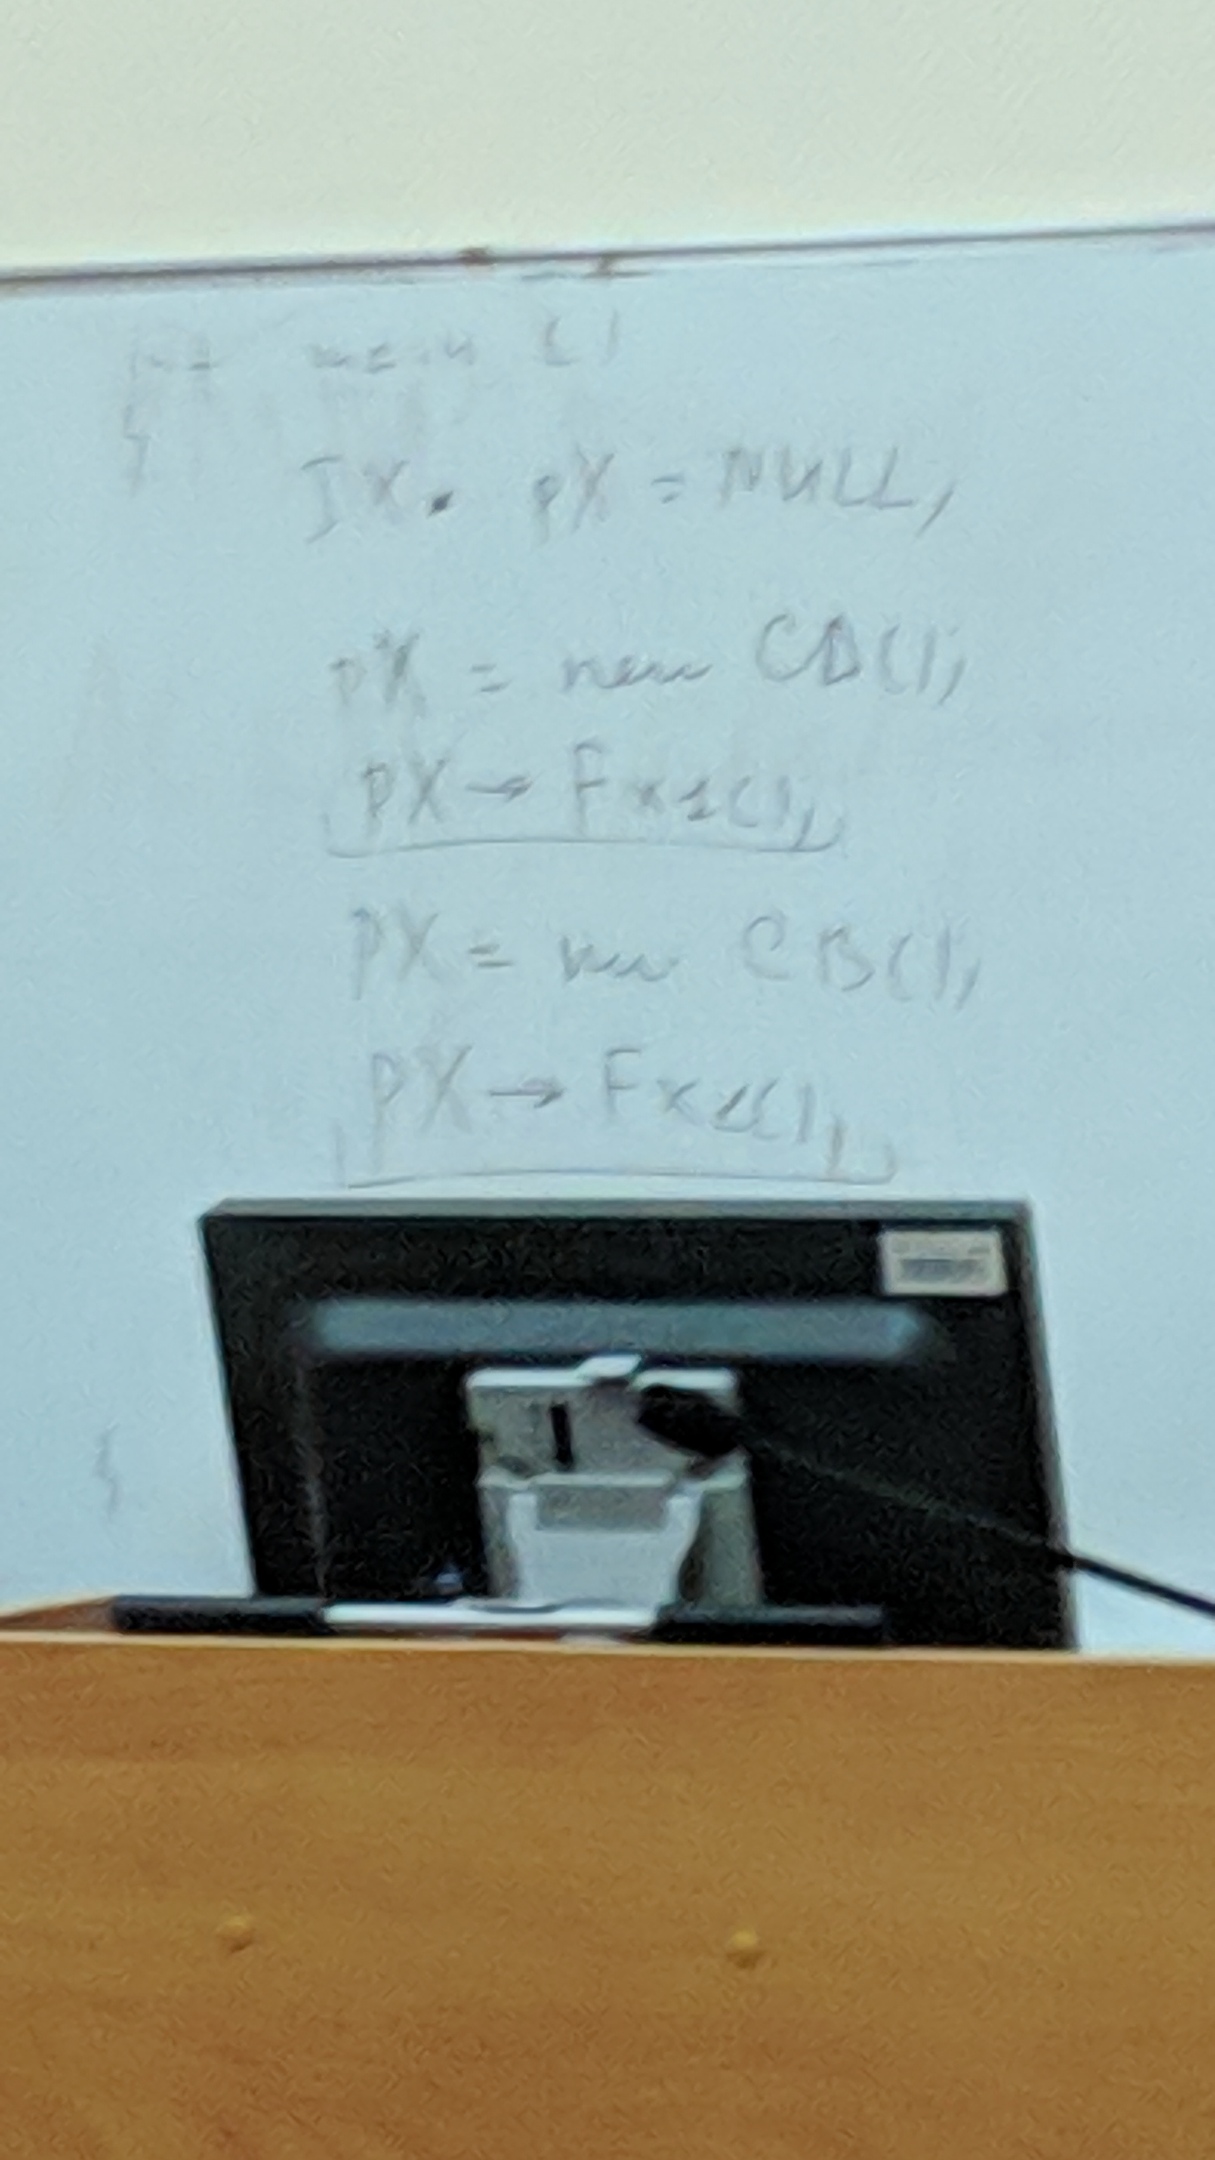 int main ()
{
IX* pX = NULL;
pX = new CD();
pX → Fx1();
pX = new CB();
pX → Fx1();
}